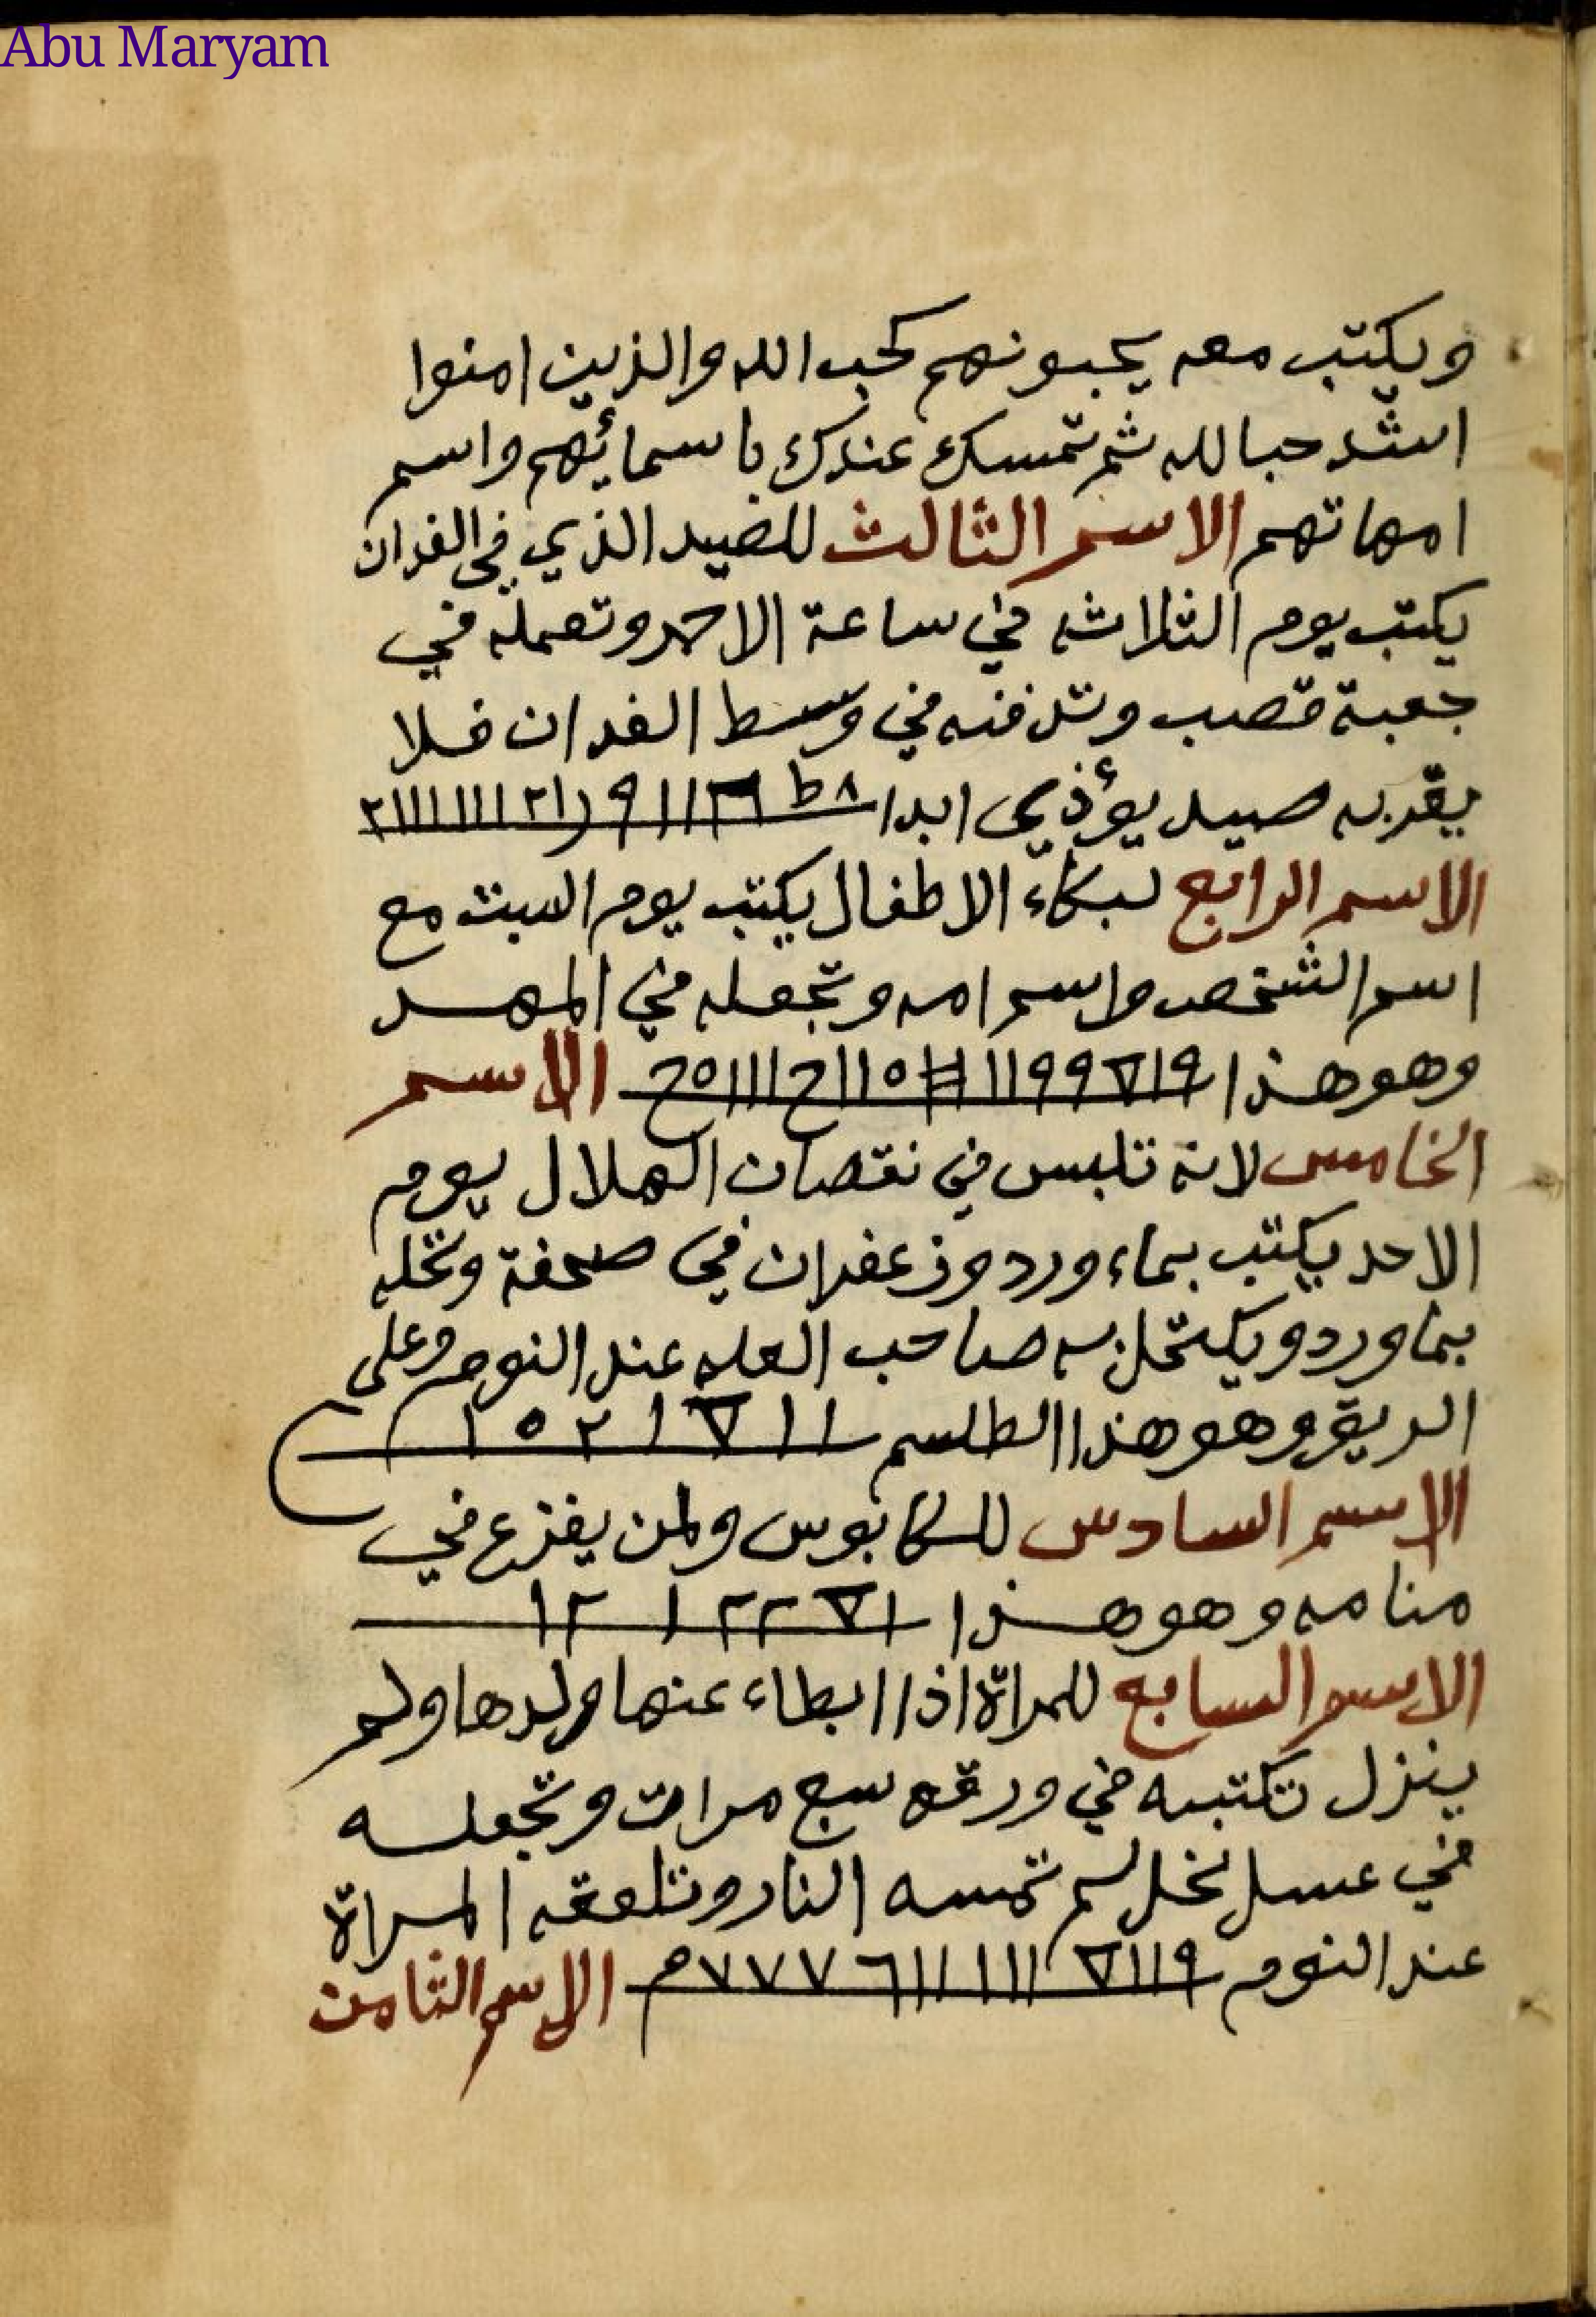 Abu Maryam
ويكتب معه يحبونهم كحب الله والذين امنوا
اشد حبا لله ثم تمسك عندك باسمائهم واسم
امهاتهم الاسم الثالث للصيد الذي في الفدان
يكتب يوم الثلاثه في ساعة الاحمر وتعمله في
جعبة قصب وتدفنه في وسط الفدان فلا
يقربه صيد يؤذي ابدا
الاسم الرابع لبكاء الاطفال يكتب يوم السبت مع
اسم الشخص واسم امه وتجعله في المهد
وهو هذا الاسم
الخامس تلبس في نقصان الهلال يوم
الاحد يكتب بماء ورد وزعفران في صحفة وتحله
بماورد ويكتحل به صاحب العله عند النوم وعلى
الريق وهو هذا الطلسم ١١ ١ ٢ ٥ ١
الاسم السادس للكابوس ولمن يفزع في
منامه وهو هذا
الاسم السابع للمراة اذا ابطاء عنها ولدها ولم
ينزل تكتبه في ورقه سبع مرات وتجعله
في عسل نحل لم تمسه النار وتلعقه المراة
عند النوم الاسم الثامن